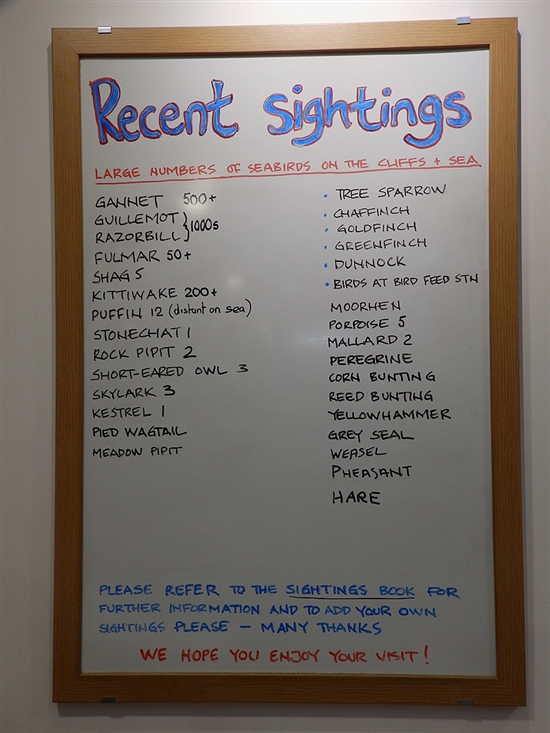 Recent Sightings
LARGE NUMBERS OF SEABIRDS ON THE CLIFFS + SEA
GANNET 500+
GUILLEMOT
RAZORBILL } 1000s
FULMAR 50+
SHAG 5
KITTIWAKE 200+
PUFFIN 12 (distant on sea)
STONECHAT 1
ROCK PIPIT 2
SHORT-EARED OWL 3
SKYLARK 3
KESTREL 1
PIED WAGTAIL
MEADOW PIPIT
• TREE SPARROW
• CHAFFINCH
• GOLDFINCH
• GREENFINCH
• DUNNOCK
• BIRDS AT BIRD FEED STN
MOORHEN
PORPOISE 5
MALLARD 2
PEREGRINE
CORN BUNTING
REED BUNTING
YELLOWHAMMER
GREY SEAL
WEASEL
PHEASANT
HARE
PLEASE REFER TO THE SIGHTINGS BOOK FOR
FURTHER INFORMATION AND TO ADD YOUR OWN
SIGHTINGS PLEASE - MANY THANKS
WE HOPE YOU ENJOY YOUR VISIT!